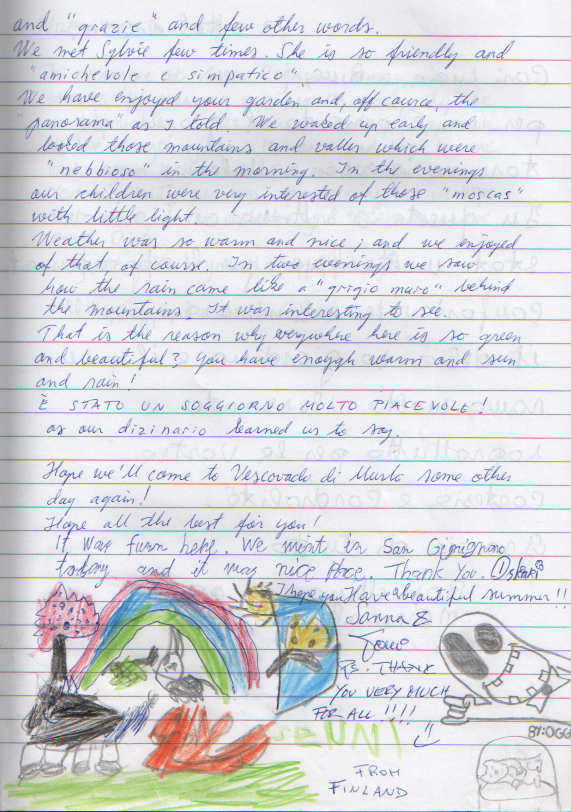 and "grazie" and few other words.
We met Sylvie few times. She is so friendly and
"amichevole e simpatico".
We have enjoyed your garden and, off cource, the
"panorama" as I told. We waked up early and
looked those mountains and valles which were
"nebbioso" in the morning. In the evenings
our children were very interested of those "moscas"
with little light.
Weather was so warm and nice; and we enjoyed
of that, of course. In two evenings we saw
how the rain came like a "grigio muro" behind
the mountains. It was interesting to see.
That is the reason why everywhere here is so green
and beautiful? you have enough warm and sun
and rain!
È STATO UN SOGGIORNO MOLTO PIACEVOLE!
as our dizinario learned us to say
Hope we'll come to Vescovado di Murlo some other
day again!
Hope all the best for you!
It was funn here. We wint in San Gimignano
today and it was nice Place. Thank You.
I hope you Have a beautiful summer!!
Sanna &
Tomi
PS. THANK
YOU VERY MUCH
FOR ALL !!!!
BY:OGG
FROM
FINLAND